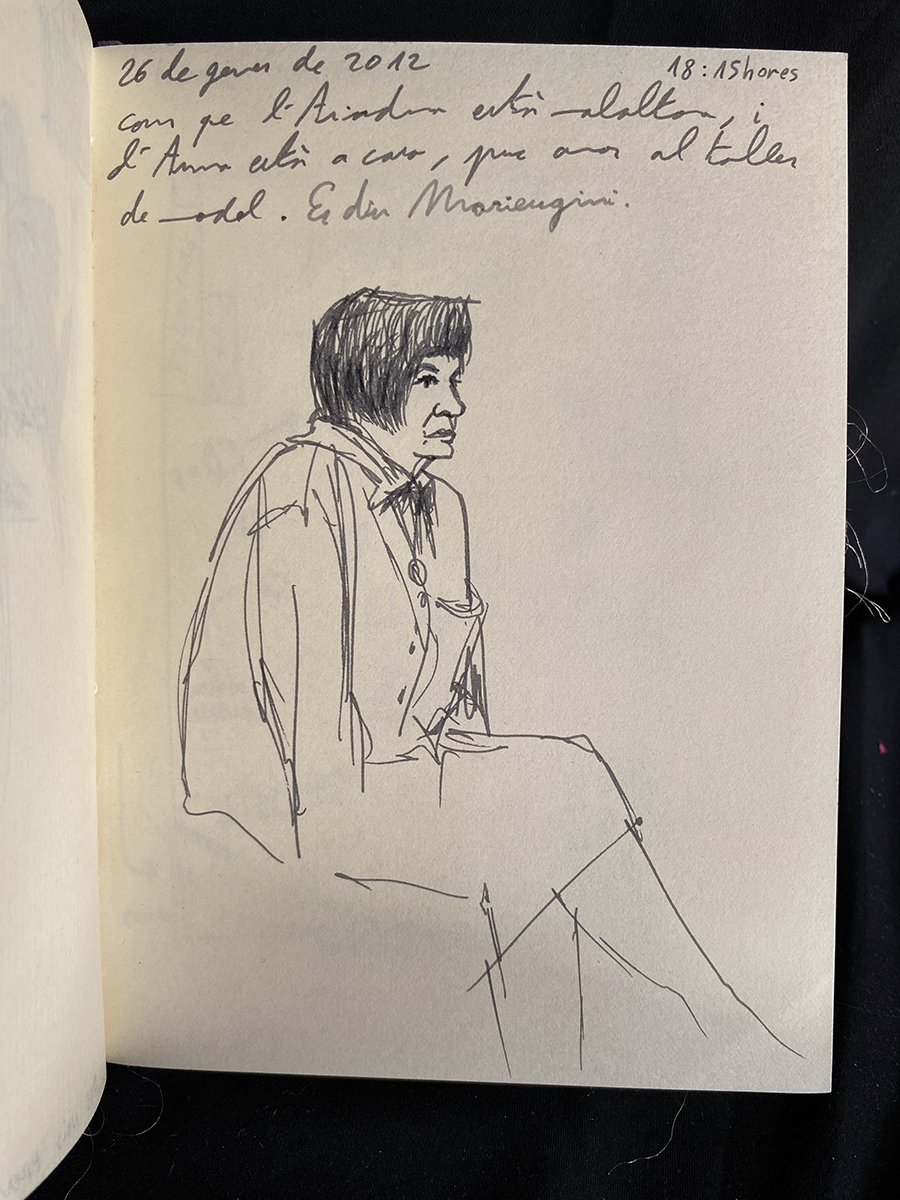 26 de gener de 2012 18:15 hores
com que l'Ariadna està malalta, i
l'Anna està a casa, puc anar al taller
de model. Es diu Marieugini.